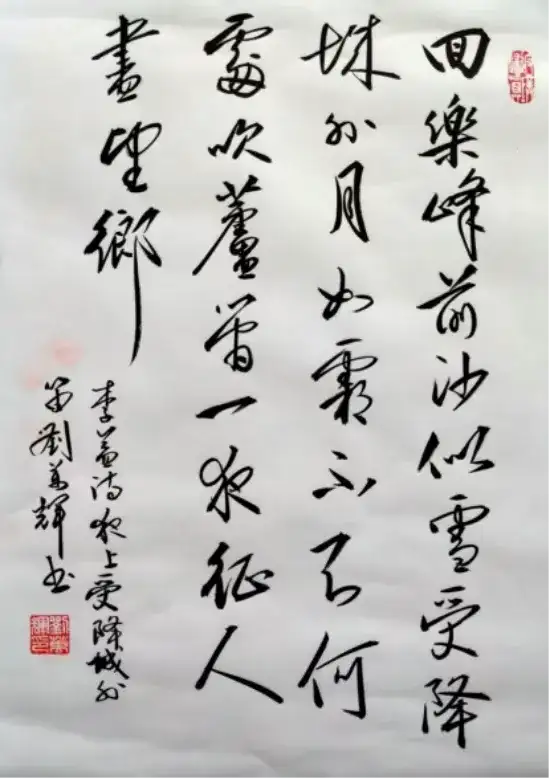 回樂峰前沙似雪受降
城外月如霜不知何
處吹蘆管一夜征人
盡望鄉
李益诗夜上受降城外
笛劉萬輝书